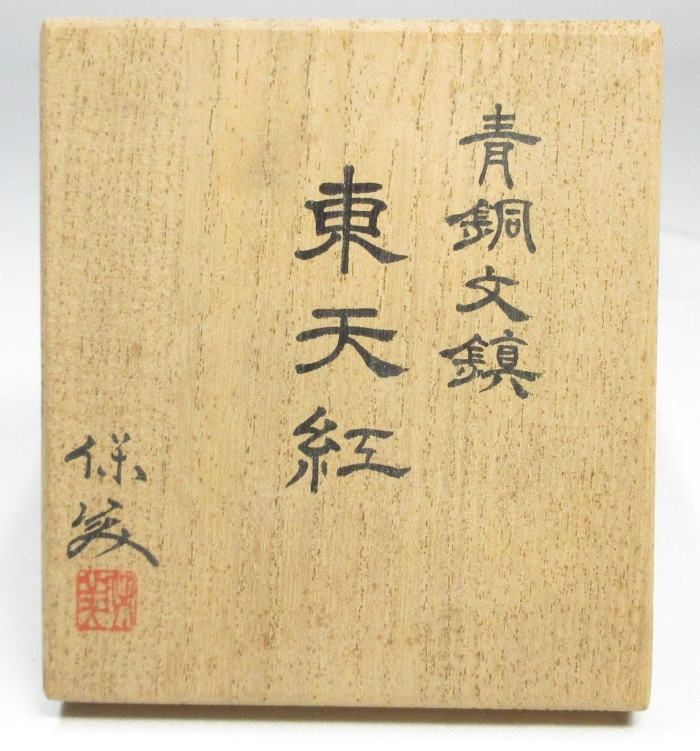 青銅文鎮
東天紅
保美